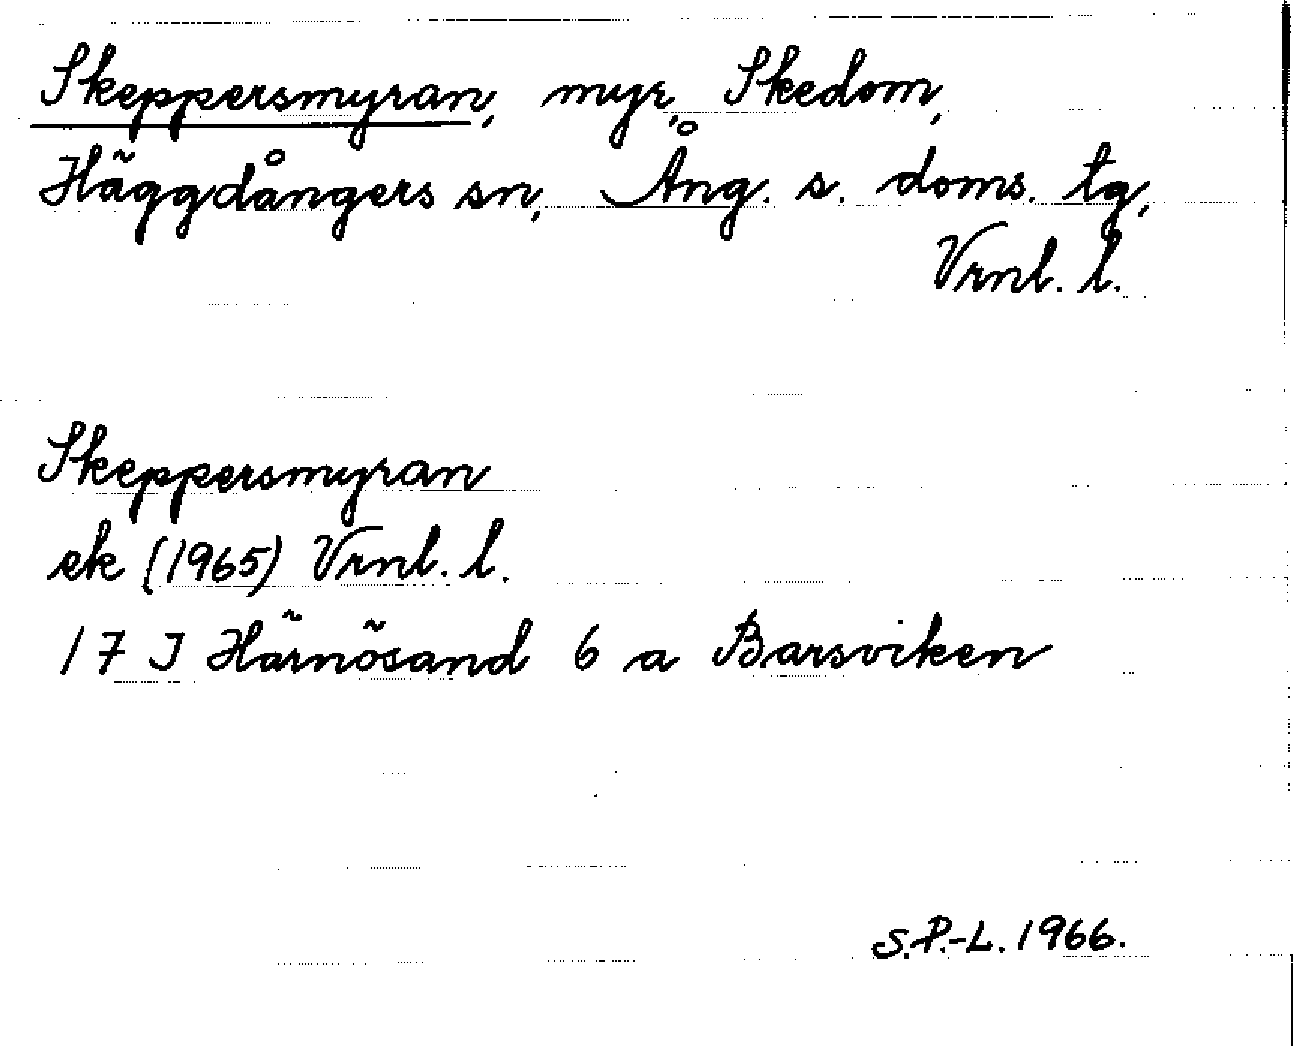 Skeppersmyran, myr, Skedom,
Häggdångers sn, Ång. s. doms. tg,
Vrnl. l.
Skeppersmyran
ek (1965) Vrnl. l.
17 J Härnösand 6 a Barsviken
S.P.-L. 1966.